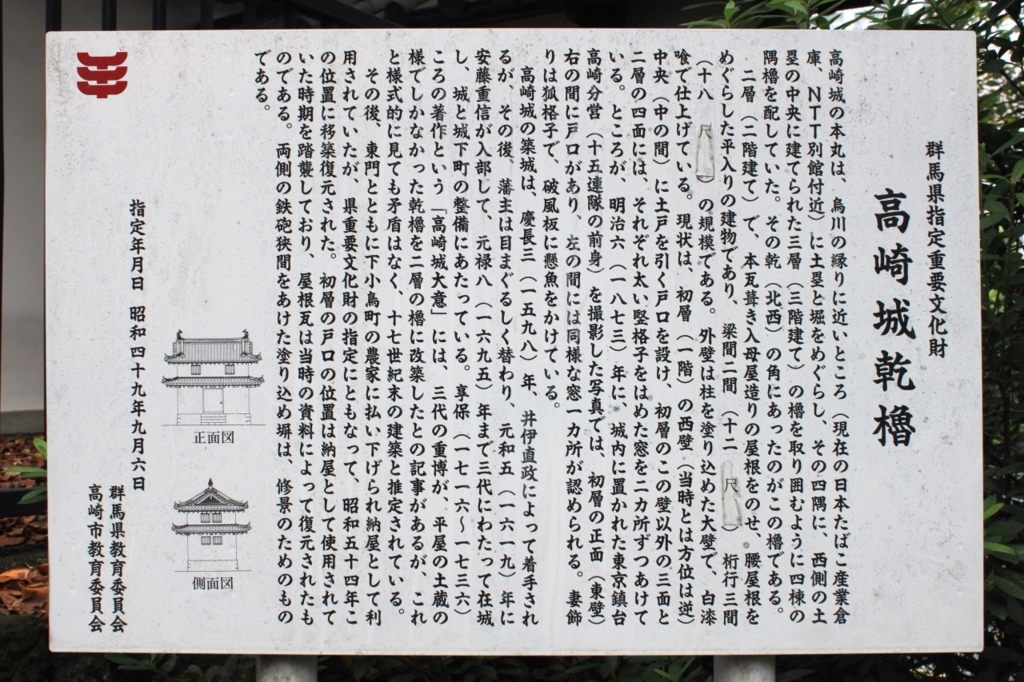 群馬県指定重要文化財
高崎城乾櫓
高崎城の本丸は、烏川の縁りに近いところ（現在の日本たばこ産業倉
庫、ＮＴＴ別館付近）に土塁と堀をめぐらし、その四隅に、西側の土
塁の中央に建てられた三層（三階建て）の櫓を取り囲むように四棟の
隅櫓を配していた。その乾（北西）の角にあったのがこの櫓である。
二層（二階建て）で、本瓦葺き入母屋造りの屋根をのせ、腰屋根を
めぐらした平入りの建物であり、梁間二間（十二尺）桁行三間
（十八尺）の規模である。外壁は柱を塗り込めた大壁で、白漆
喰で仕上げている。現状は、初層（一階）の西壁（当時とは方位は逆）
中央（中の間）に土戸を引く戸口を設け、初層のこの壁以外の三面と
二層の四面には、それぞれ太い堅格子をはめた窓を二カ所ずつあけて
いる。ところが、明治六（一八七三）年に、城内に置かれた東京鎮台
高崎分営（十五連隊の前身）を撮影した写真では、初層の正面（東壁）
右の間に戸口があり、左の間には同様な窓一カ所が認められる。妻飾
りは狐格子で、破風板に懸魚をかけている。
高崎城の築城は、慶長三（一五九八）年、井伊直政によって着手され
るが、その後、藩主は目まぐるしく替わり、元和五（一六一九）年に
安藤重信が入部して、元禄八（一六九五）年まで三代にわたって在城
し、城と城下町の整備にあたっている。享保（一七一六～一七三六）
ころの著作という「高崎城大意」には、三代の重博が、平屋の土蔵の
様でしかなかった乾櫓を二層の櫓に改築したとの記事があるが、これ
と様式的に見ても矛盾はなく、十七世紀末の建築と推定されている。
その後、東門とともに下小鳥町の農家に払い下げられ納屋として利
用されていたが、県重要文化財の指定にともなって、昭和五十四年こ
の位置に移築復元された。初層の戸口の位置は納屋として使用されて
いた時期を踏襲しており、屋根瓦は当時の資料によって復元されたも
のである。両側の鉄砲狭間をあけた塗り込め塀は、修景のためのもの
である。
正面図
側面図
指定年月日　昭和四十九年九月六日
群馬県教育委員会
高崎市教育委員会